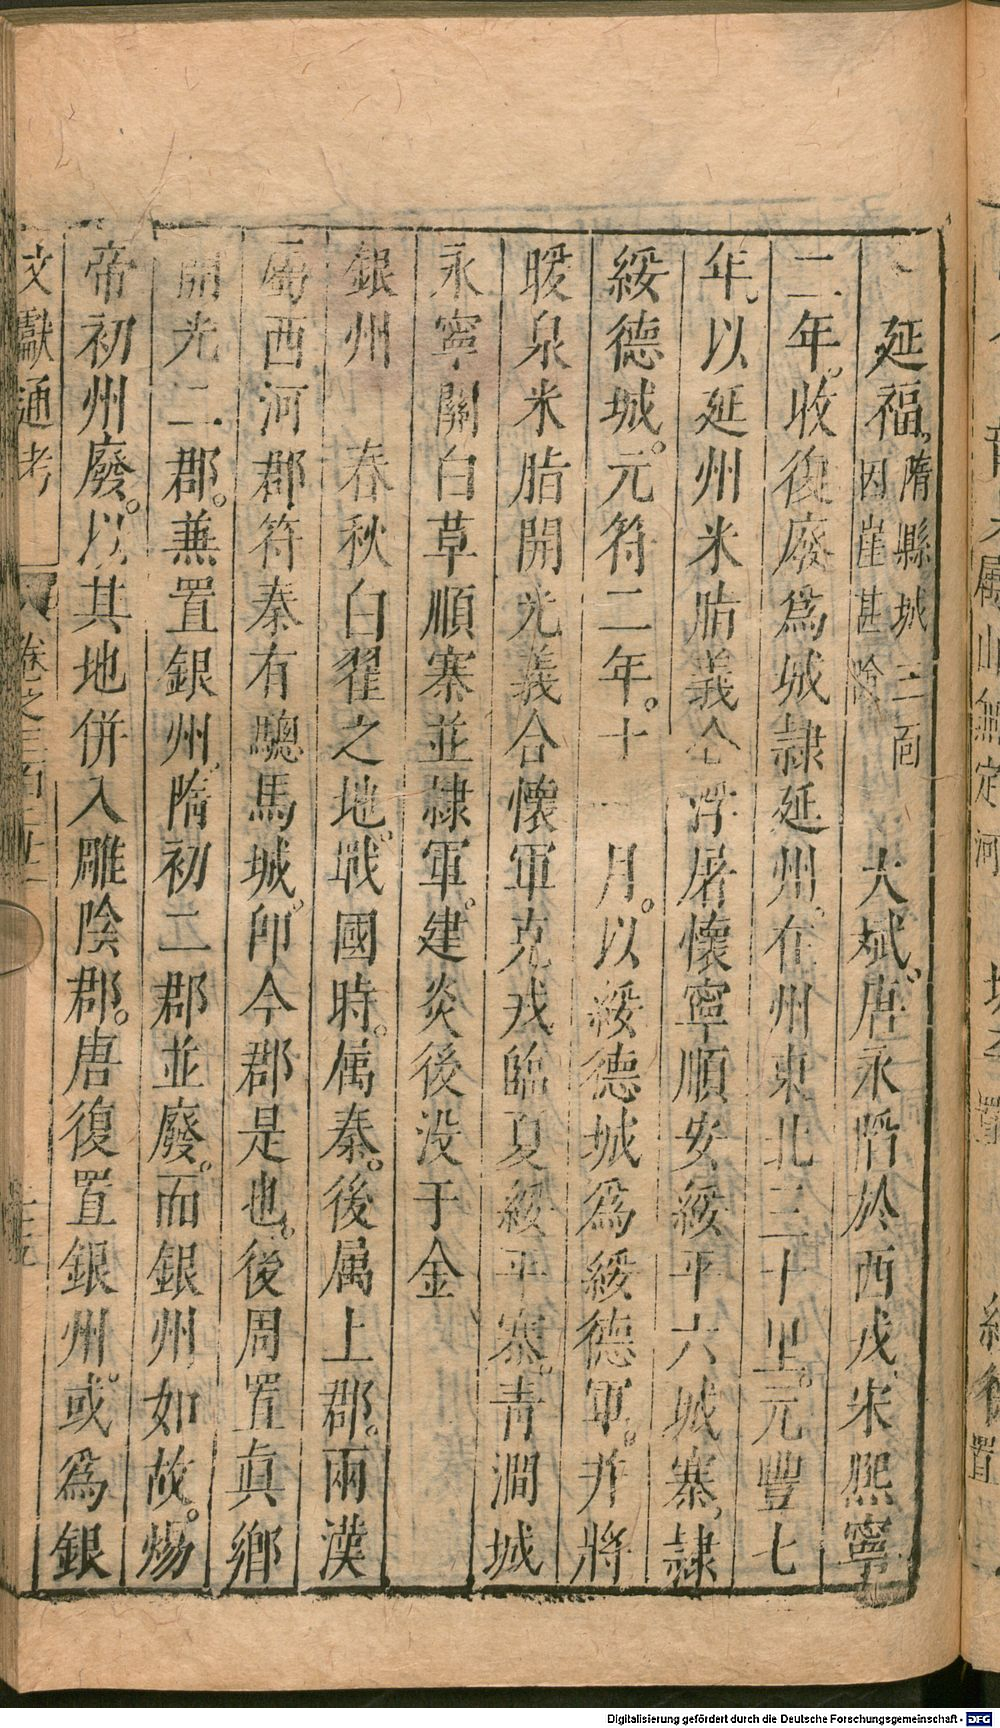 延福。隋縣城三面因崖甚險 大斌。唐永陷於西戎宋熙寧
二年。收復廢爲城隸延州。在州東北三十里。元豐七
年。以延州米脂義合浮屠懷寧順安綏平六城寨隸
綏德城。元符二年。十一月。以綏德城爲綏德軍。并將
暖泉米脂開光義合懷軍克戎臨夏綏平寨。青澗城
永寧關白草順寨並隸軍。建炎後没于金
銀州 春秋白翟之地。戰國時。属秦。後属上郡。兩漢
属西河郡符秦有驄馬城。卽今郡是也。後周置真鄉
開光二郡。兼置銀州。隋初二郡並廢。而銀州如故。煬
帝初州廢。以其地併入雕陰郡。唐復置銀州。或爲銀
文獻通考 卷之三百二十二
Digitalisierung gefördert durch die Deutsche Forschungsgemeinschaft - DFG